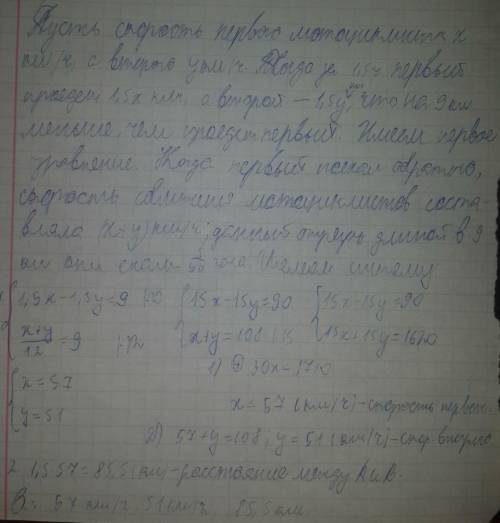 Пусть скорость первого мотоциклиста x
км/ч, а второго y км/ч. Тогда за 1,5ч первый
проедет 1,5x км, а второй — 1,5y, что на 9 км
меньше, чем проедет первый. Имеем первое
уравнение. Когда первый поехал обратно,
скорость мотоциклистов соста-
вляла (x+y) км/ч; данный отрезок длиной в 9
км они часа. Имеем систему
{1,5x-1,5y=9 {15x-15y=90 {15x-15y=90
{(x+y)/12=9 {x+y=108 {15x+15y=1620
{x=57 1) 30x=1710
{y=51 x=57 (км/ч)-скорость первого
2) 57+y=108, y=51 (км/ч)-скор. второго
2. 1,5·57=85,5 (км)-расстояние между A и B.
57 км/ч, 51 км/ч, 85,5 км